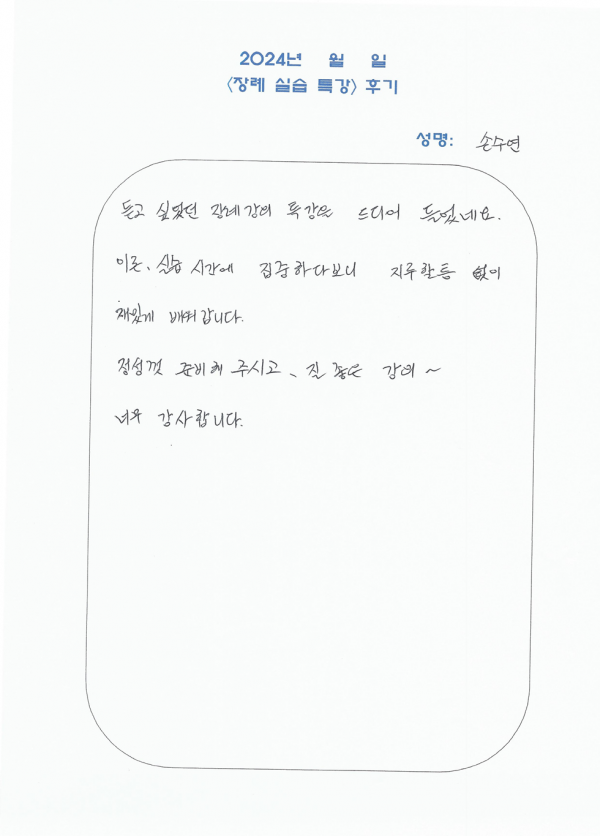 2024년 월 일
<장례 실습 특강> 후기
성명: 손수연
듣고 싶었던 장례강의 특강을 드디어 들었네요.
이론, 실습 시간에 집중하다보니 지루할틈 없이
재밌게 배워갑니다.
정성껏 준비해 주시고, 질 좋은 강의~
너무 감사합니다.